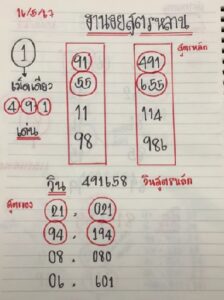 16/5/67
ฐานงยสูตรหลาน
สูตรหลัก
1 91 491
เม็ดเดียว 55 655
4 9 1 11 114
เด่น 98 986
วิน 491658 วินสูตรหลัก
สูตรรอง
21 . 021
94 . 194
08 . 080
06 . 601